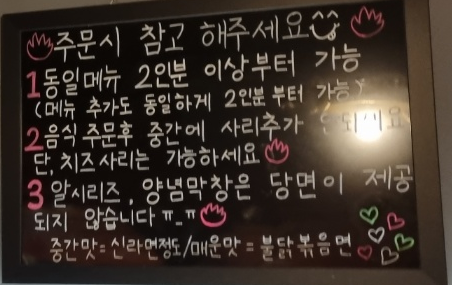 주문시 참고 해주세요
1 동일메뉴 2인분 이상부터 가능
(메뉴 추가도 동일하게 2인분 부터 가능)
2 음식 주문후 중간에 사리추가
단, 치즈사리는 가능하세요
3 알시리즈, 양념막창은 당면이 제공
되지 않습니다 ㅠ_ㅠ
중간맛=신라면정도/매운맛=불닭볶음면